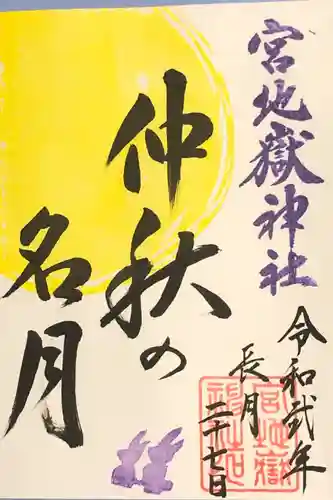 宮地嶽神社
仲秋の
名月
令和弐年
長月
二十七日
宮地嶽
神社